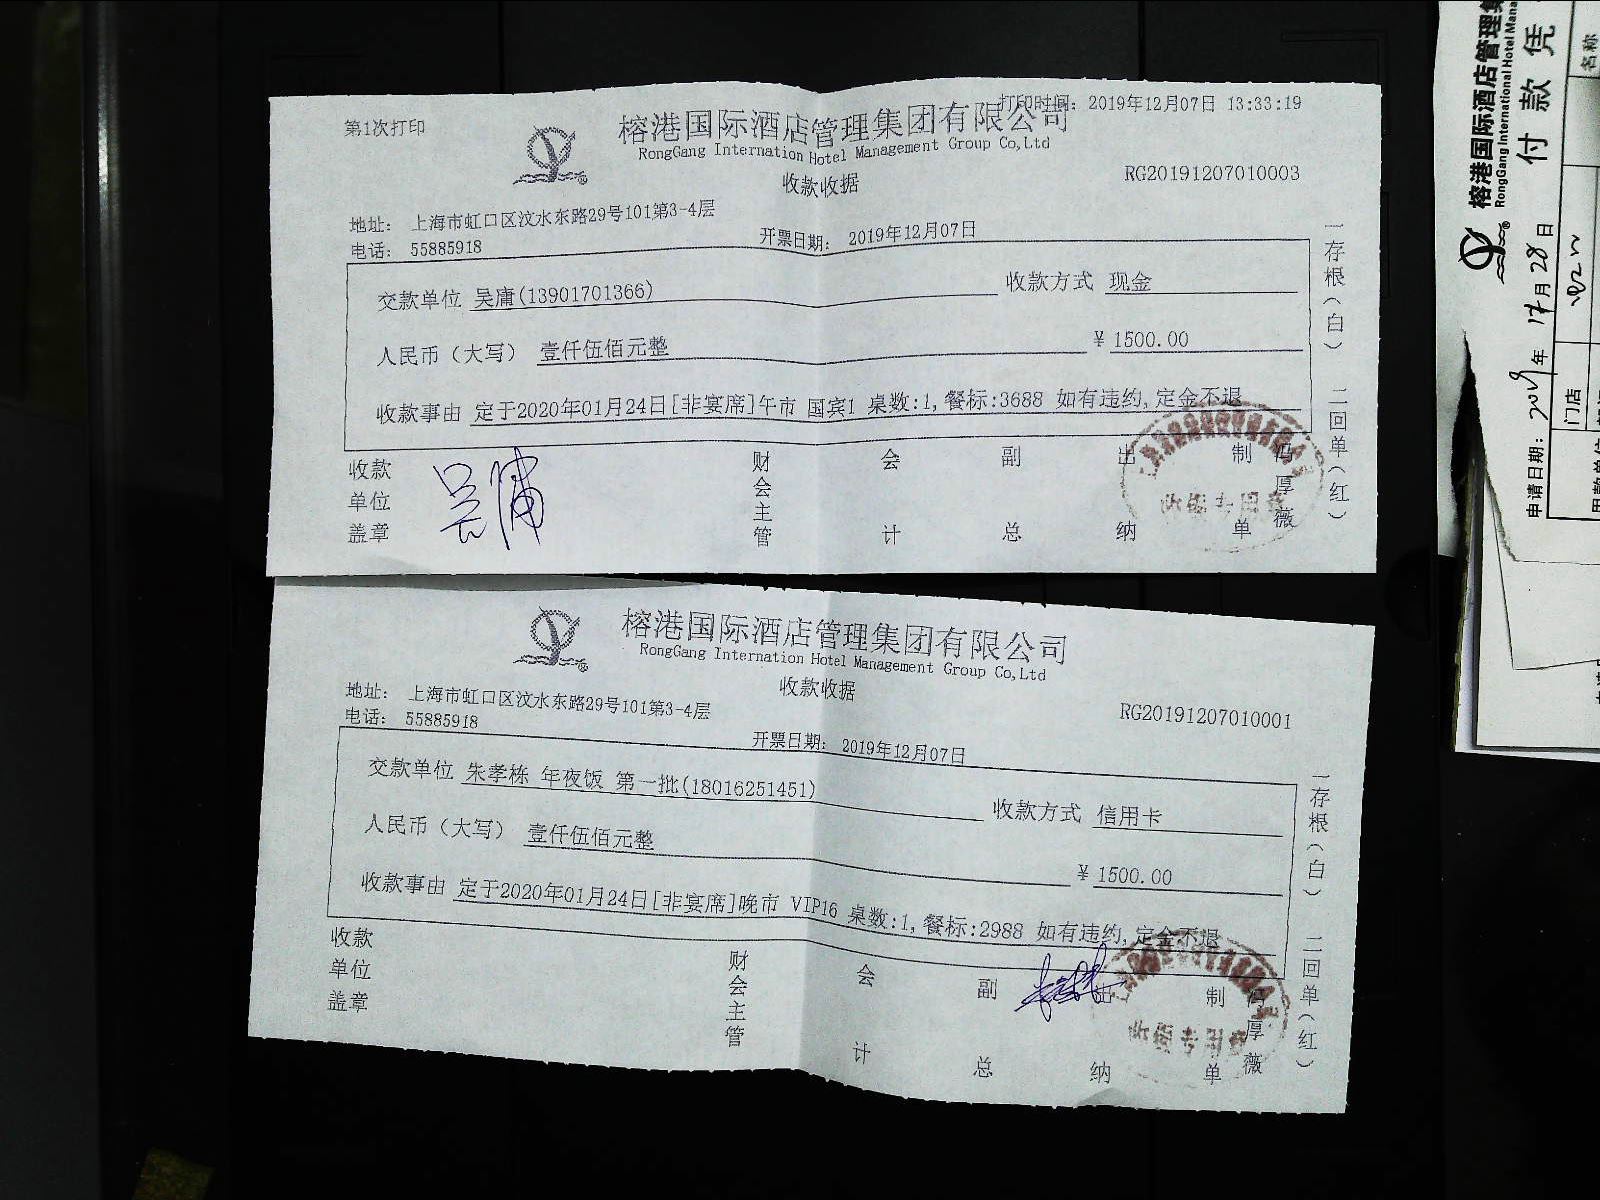 第1次打印
打印时间: 2019年12月07日 13:33:19
榕港国际酒店管理集团有限公司
RongGang Internation Hotel Management Group Co,Ltd
收款收据
RG20191207010003
地址: 上海市虹口区汶水东路29号101第3-4层
电话: 55885918
开票日期: 2019年12月07日
交款单位 吴庸(13901701366) 收款方式 现金
人民币(大写) 壹仟伍佰元整 ¥1500.00
收款事由 定于2020年01月24日[非宴席]午市 国宾1 桌数:1,餐标:3688 如有违约,定金不退
收款单位盖章 财会主管 会计 副总 出纳 制单 冯厚薇
一存根(白) 二回单(红)
榕港国际酒店管理集团有限公司
RongGang Internation Hotel Management Group Co,Ltd
收款收据
RG20191207010001
地址: 上海市虹口区汶水东路29号101第3-4层
电话: 55885918
开票日期: 2019年12月07日
交款单位 朱孝栋 年夜饭 第一批(18016251451) 收款方式 信用卡
人民币(大写) 壹仟伍佰元整 ¥1500.00
收款事由 定于2020年01月24日[非宴席]晚市 VIP16 桌数:1,餐标:2988 如有违约,定金不退
收款单位盖章 财会主管 会计 副总 出纳 制单 冯厚薇
一存根(白) 二回单(红)
榕港国际酒店管理集
RongGang International Hotel Mana
付款凭
申请日期: 2019年12月28日
门店
名称